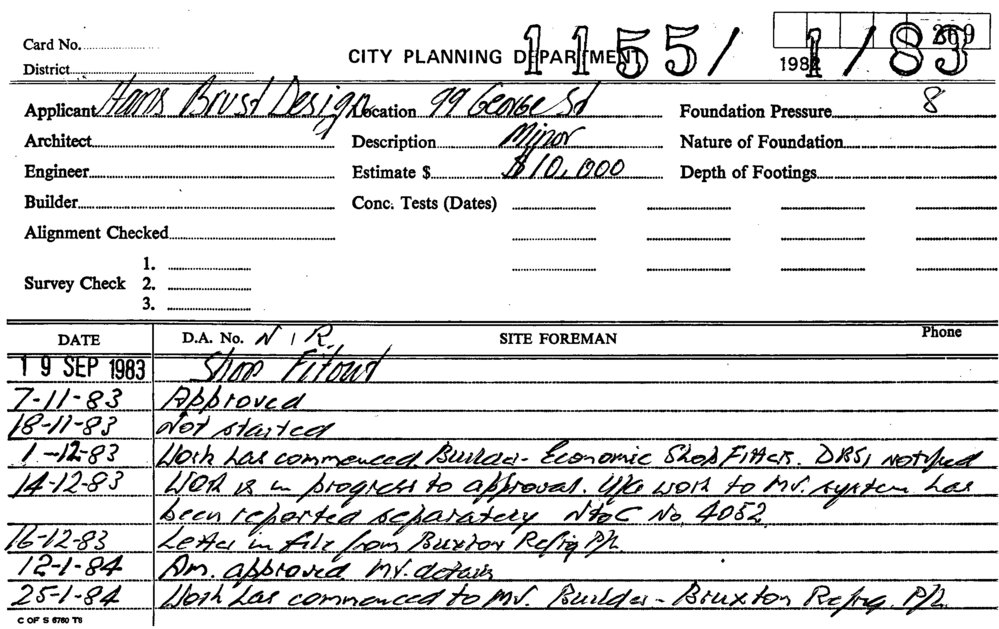 Card No.
1155/1/83
269
CITY PLANNING DEPARTMENT
198
District
Applicant Hans Brust Design Location 99 George St Foundation Pressure 8
Architect Description Minor Nature of Foundation
Engineer Estimate $ $10,000 Depth of Footings
Builder Conc. Tests (Dates)
Alignment Checked
1.
Survey Check 2.
3.
DATE D.A. No. N I R. SITE FOREMAN Phone
19 SEP 1983 Shop Fitout
7-11-83 Approved
18-11-83 Not started
1-12-83 Work has commenced. Builder - Economic Shop Fitters. DBS, notified
14-12-83 Work is in progress to approval. work to MV. system has
been reported separately NtoC No. 4052
16-12-83 Letter in file from Buxton Refrig P/L
12-1-84 Am. approved MV. details
25-1-84 Work has commenced to MV. Builder - Bruxton Refrig. P/L.
C OF S 6760 T6